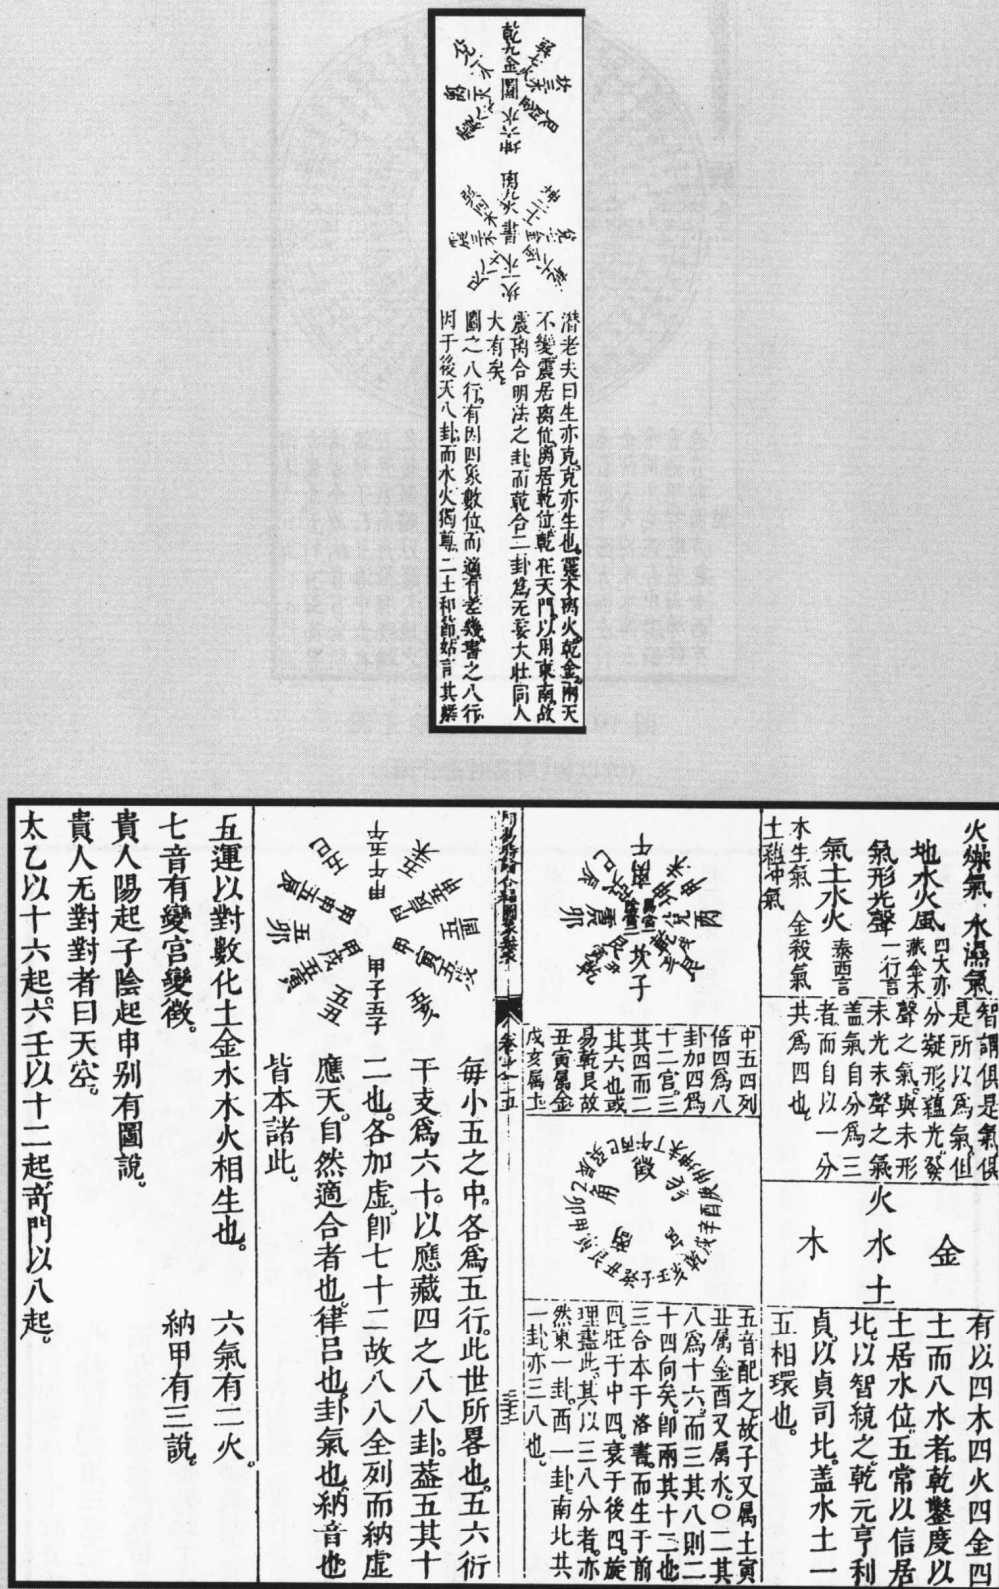 潛老夫曰生亦克克亦生也震木离火乾金兩天
不變震居离位离居乾位乾在天門以用東南故
震离合明法之卦而乾合二卦爲无妄大壯同人
大有矣。
圖之八行有因四象數位而適有差幾書之八行
因于後天八卦而水火獨尊二土和節姑言其槩
火燥氣 水濕氣
地水火風 四大亦藏金木
氣形光聲 一行言
氣土水火 泰西言
木生氣 金殺氣
土蘊冲氣
智謂俱是氣俱
是所以爲氣但
分凝形蘊光發
聲之氣與未形
未光未聲之氣
蓋氣自分爲三
者而自以一分
共爲四也。
金
火水土
木
有以四木四火四金四
土而八水者乾鑿度以
土居水位五常以信居
北以智統之乾元亨利
貞以貞司北蓋水土一
五相環也。
中五四列
倍四爲八
卦加四爲
十二宮三
其四而二
其六也或
易乾艮故
丑寅屬金
戌亥屬土
五音配之故子又屬土寅
丑屬金酉又屬水〇二其
八爲十六而三其八則二
十四向矣卽兩其十二也
三合本于洛書而生于前
四旺于中四衰于後四旋
理盡此其以三八分者亦
然東一卦西一卦南北共
一卦亦三八也。
每小五之中各爲五行此世所畧也五六衍
干支爲六十以應藏四之八八卦蓋五其十
二也各加虛卽七十二故八八全列而納虛
應天自然適合者也律呂也卦氣也納音也
皆本諸此。
五運以對數化土金水木火相生也。 六氣有二火。
七音有變宮變徵。 納甲有三說。
貴人陽起子陰起申别有圖說。
貴人无對對者曰天空。
太乙以十六起六壬以十二起竒門以八起。